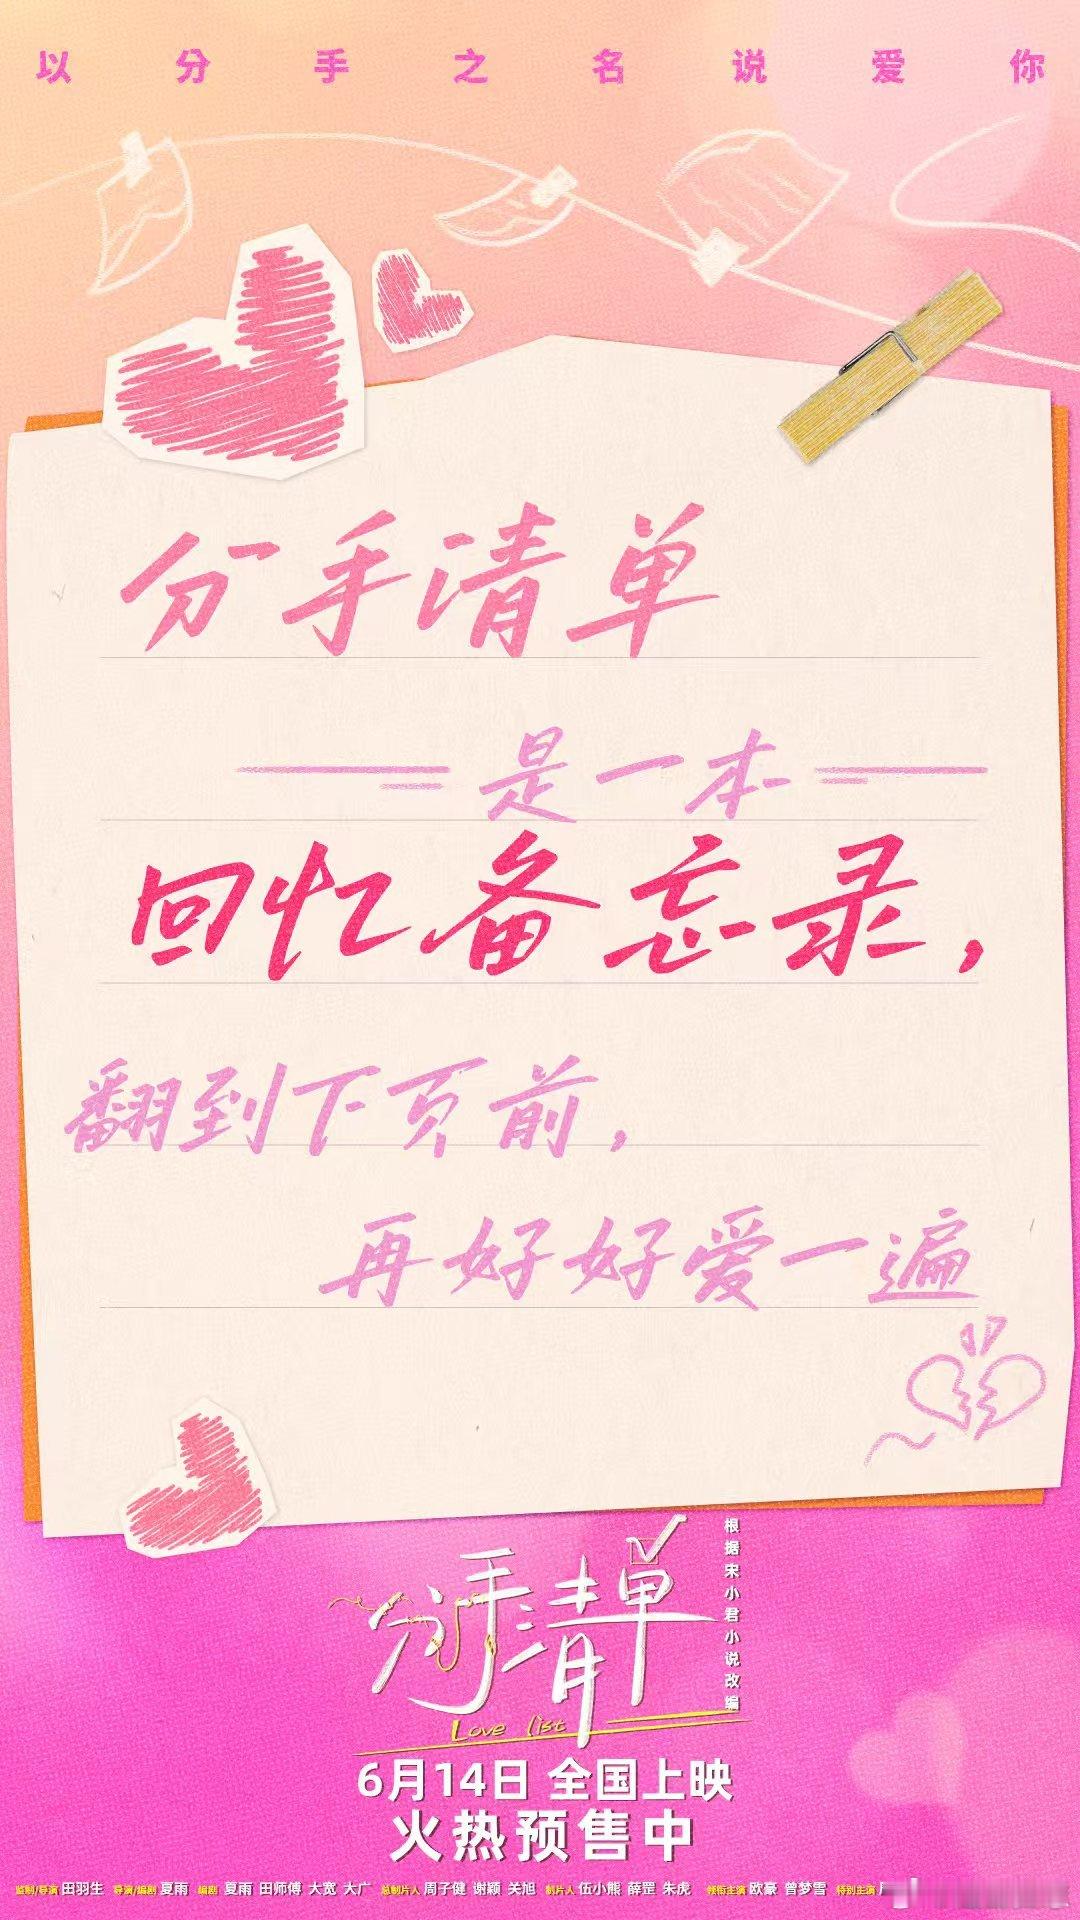 以分手之名说爱你
分手清单
是一本
回忆备忘录，
翻到下页前，
再好好爱一遍
分手清单
根据宋小君小说改编
Love list
6月14日 全国上映
火热预售中
监制/导演 田羽生 导演/编剧 夏雨 编剧 夏雨 田师傅 大宽 大广 总制片人 周子健 谢颖 关旭 制片人 伍小熊 薛罡 朱虎 领衔主演 欧豪 曾梦雪 特别主演